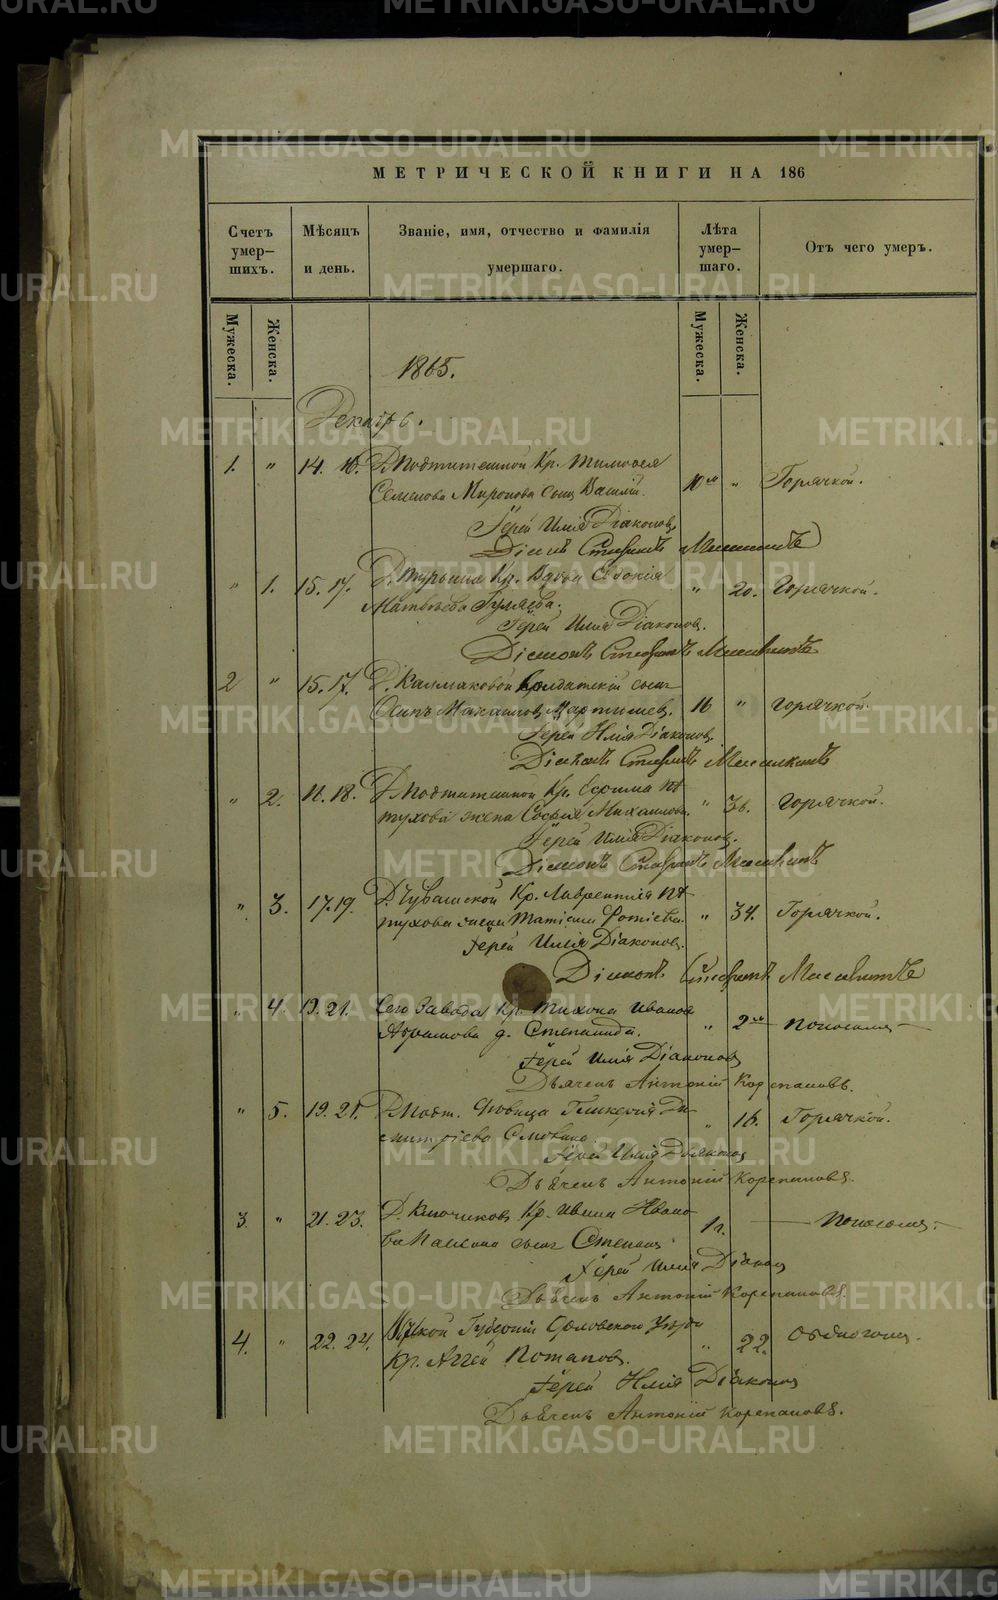 МЕТРИЧЕСКОЙ КНИГИ НА 186
Счетъ умерших. Мѣсяцъ и день. Званіе, имя, отчество и фамилія умершаго. Лѣта умершаго. Отъ чего умеръ.
Мужеска. Женска. Мужеска. Женска.
1865.
Декабрь.
1. " 14. 16. Д. Подтитешной Кр. Тимофея
Семенова Миронова сынъ Василій. 10 м " Горячкой.
Іерей Илія Діаконовъ
Діаконъ Стефанъ
" 1. 15. 17. Д. Кр. Вдова Евдокія
Матвѣева Гуляева. " 20. Горячкой.
Іерей Илія Діаконовъ.
Діаконъ Стефанъ
2 " 15. 17. Д. Калмаковой Солдатскій сынъ
Осипъ Михаиловъ Мартышевъ. 16 " горячкой.
Іерей Илія Діаконовъ.
Діаконъ Стефанъ
" 2. 18. Д. Подтитешной Кр. Ефима Пѣ
тухова жена Софія Михаилова. " 36. горячкой.
Іерей Илія Діаконовъ.
Діаконъ Стефанъ
" 3. 17. 19. Д. Чувашской Кр. Лаврентія Пѣ
тухова жена Татіана Фотіева. " 34. Горячкой.
Іерей Илія Діаконовъ.
Діаконъ Стефанъ
" 4. 19. 21. Сего Завода Кр. Тихона Иванова
Абрамова д. Степанида. " 2 м поносомъ
Іерей Илія Діаконовъ
Дьячекъ Антоній Корепановъ.
" 5. 19. 21. Д. Подт. Дѣвица Гликерія Ди
митріева " 16. Горячкой.
Іерей Илія Діаконовъ
Дьячекъ Антоній Корепановъ.
3. " 21. 23. Д. Ключиковъ Кр. Ивана Ивано
ва сынъ Степанъ 1 г. Поносомъ
Іерей Илія Діаконовъ
Дьячекъ Антоній Корепановъ.
4. " 22. 24. Вятской Губерніи Орловского Уѣзда
Кр. Аггей Потаповъ. " 22.
Іерей Илія Діаконовъ
Дьячекъ Антоній Корепановъ.
METRIKI.GASO-URAL.RU